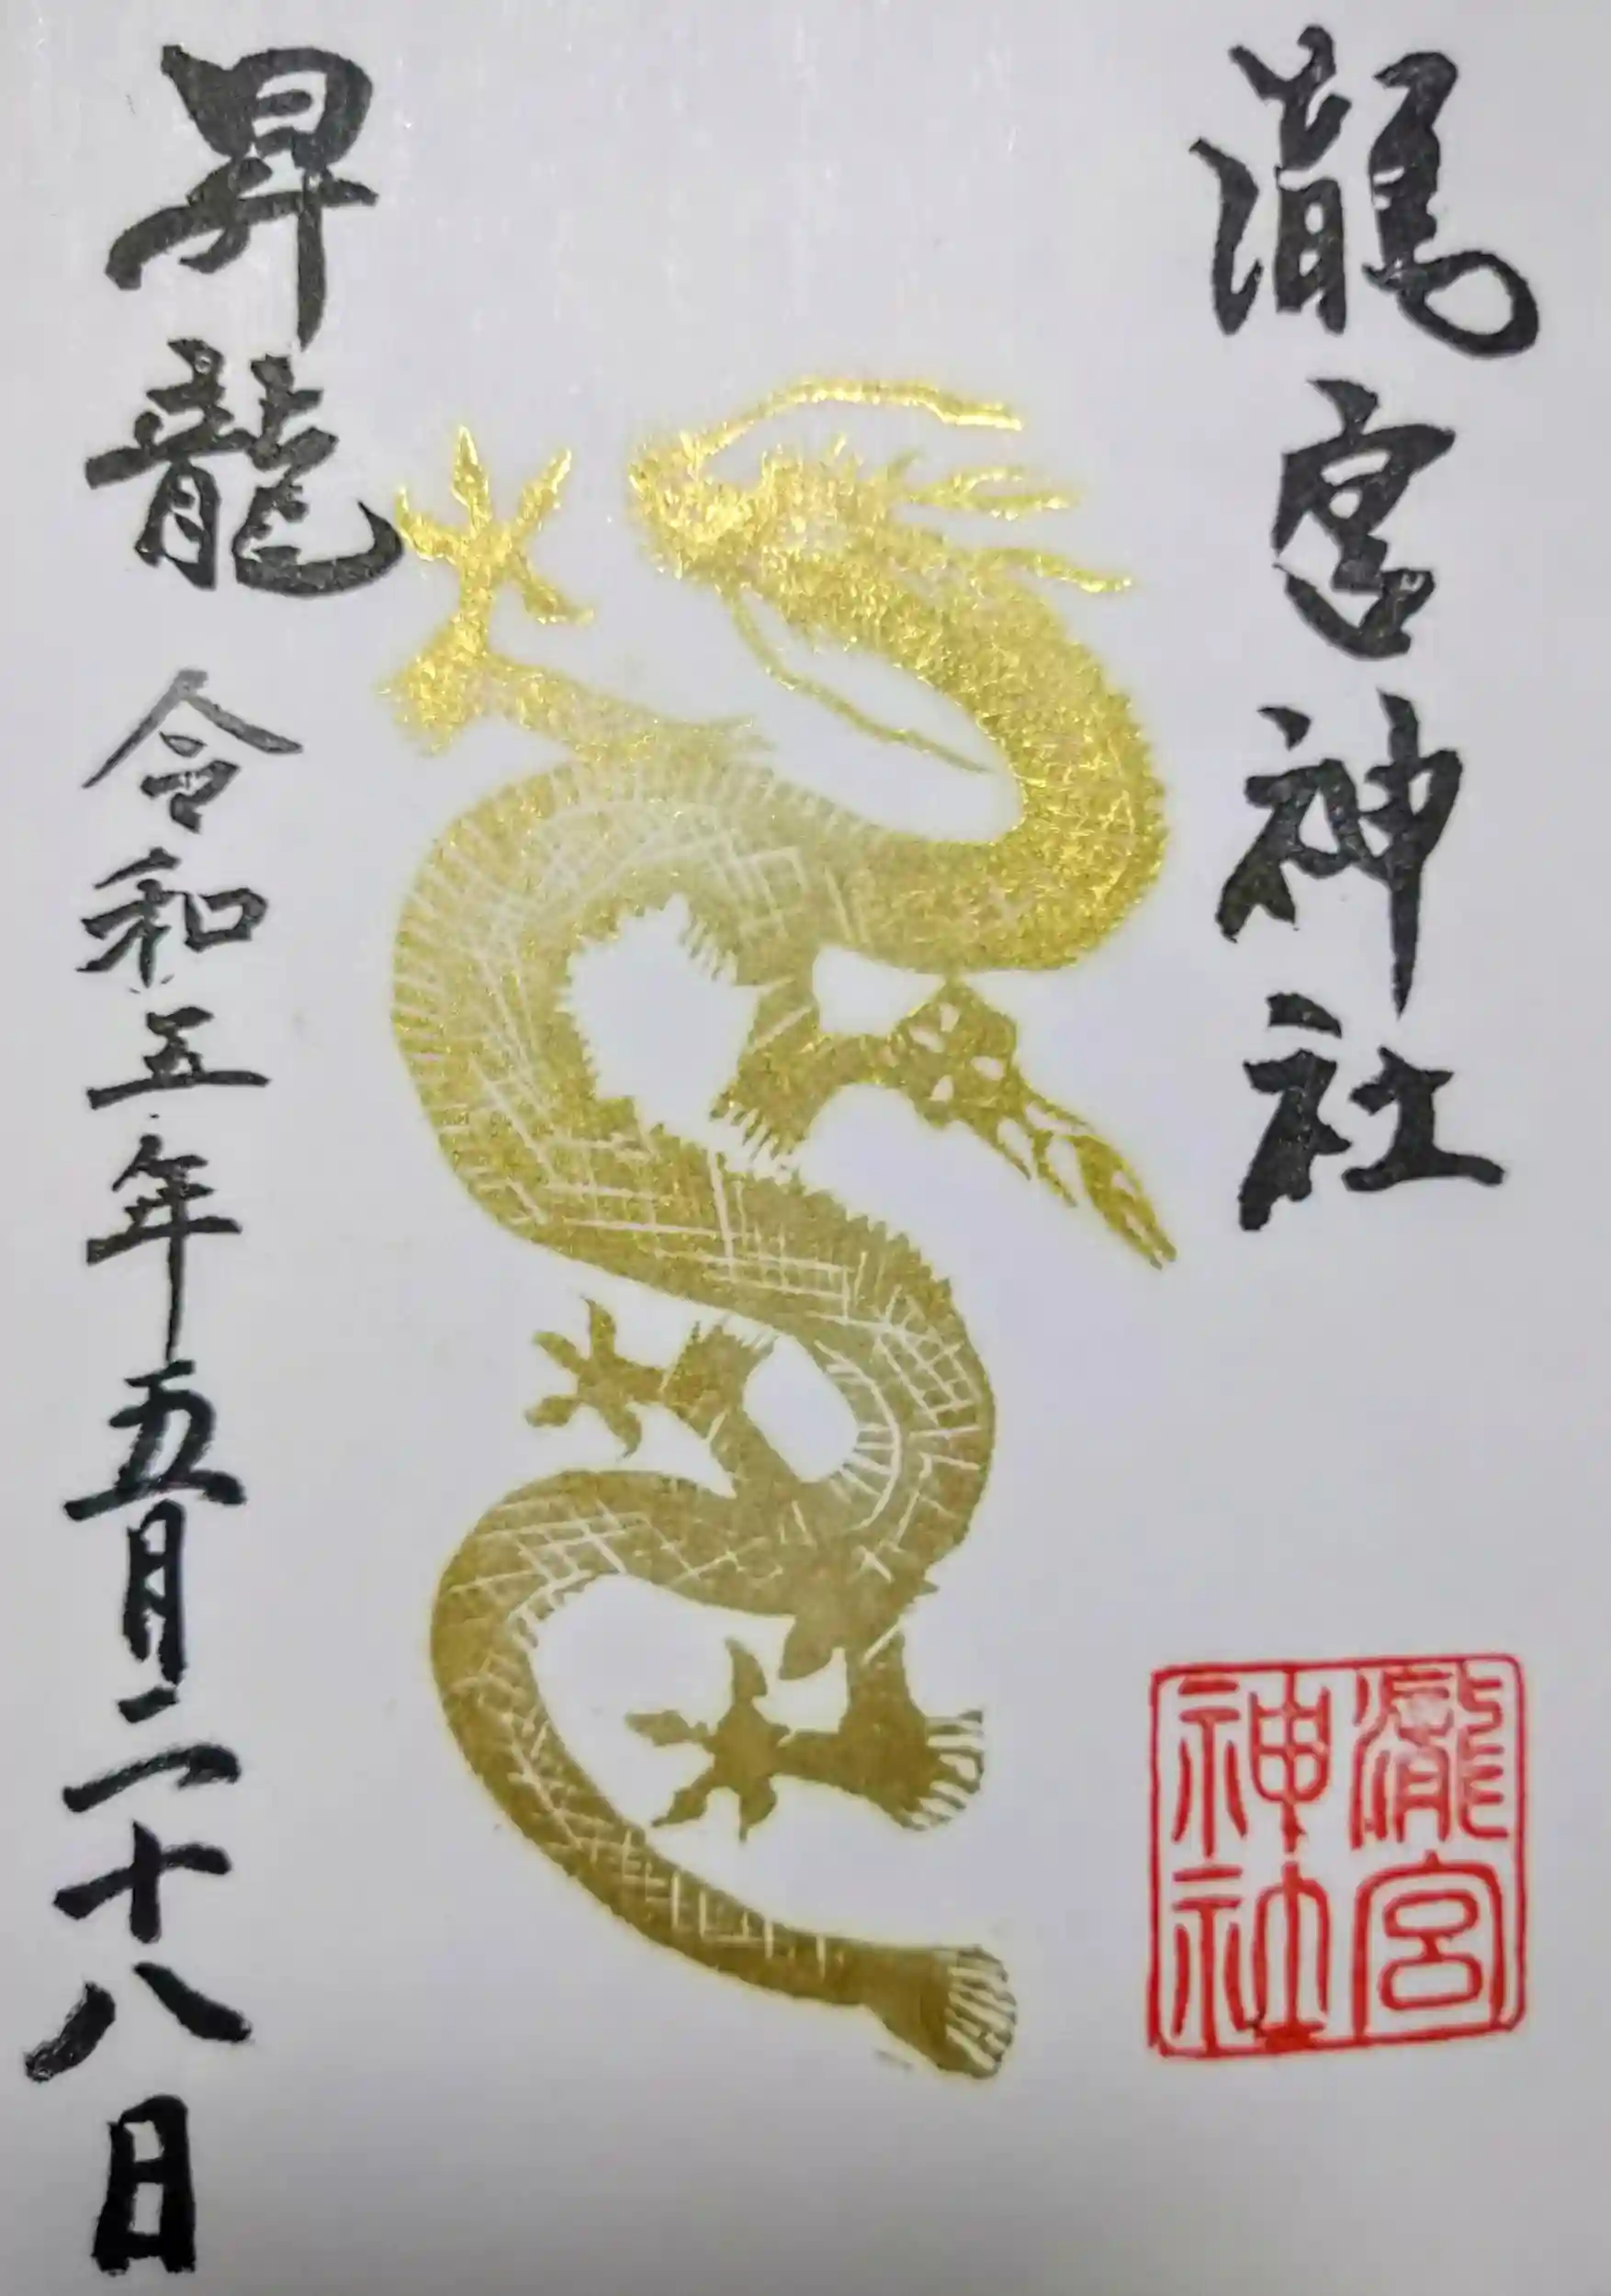 瀧宮神社
瀧宮
神社
昇龍
令和五年五月二十八日